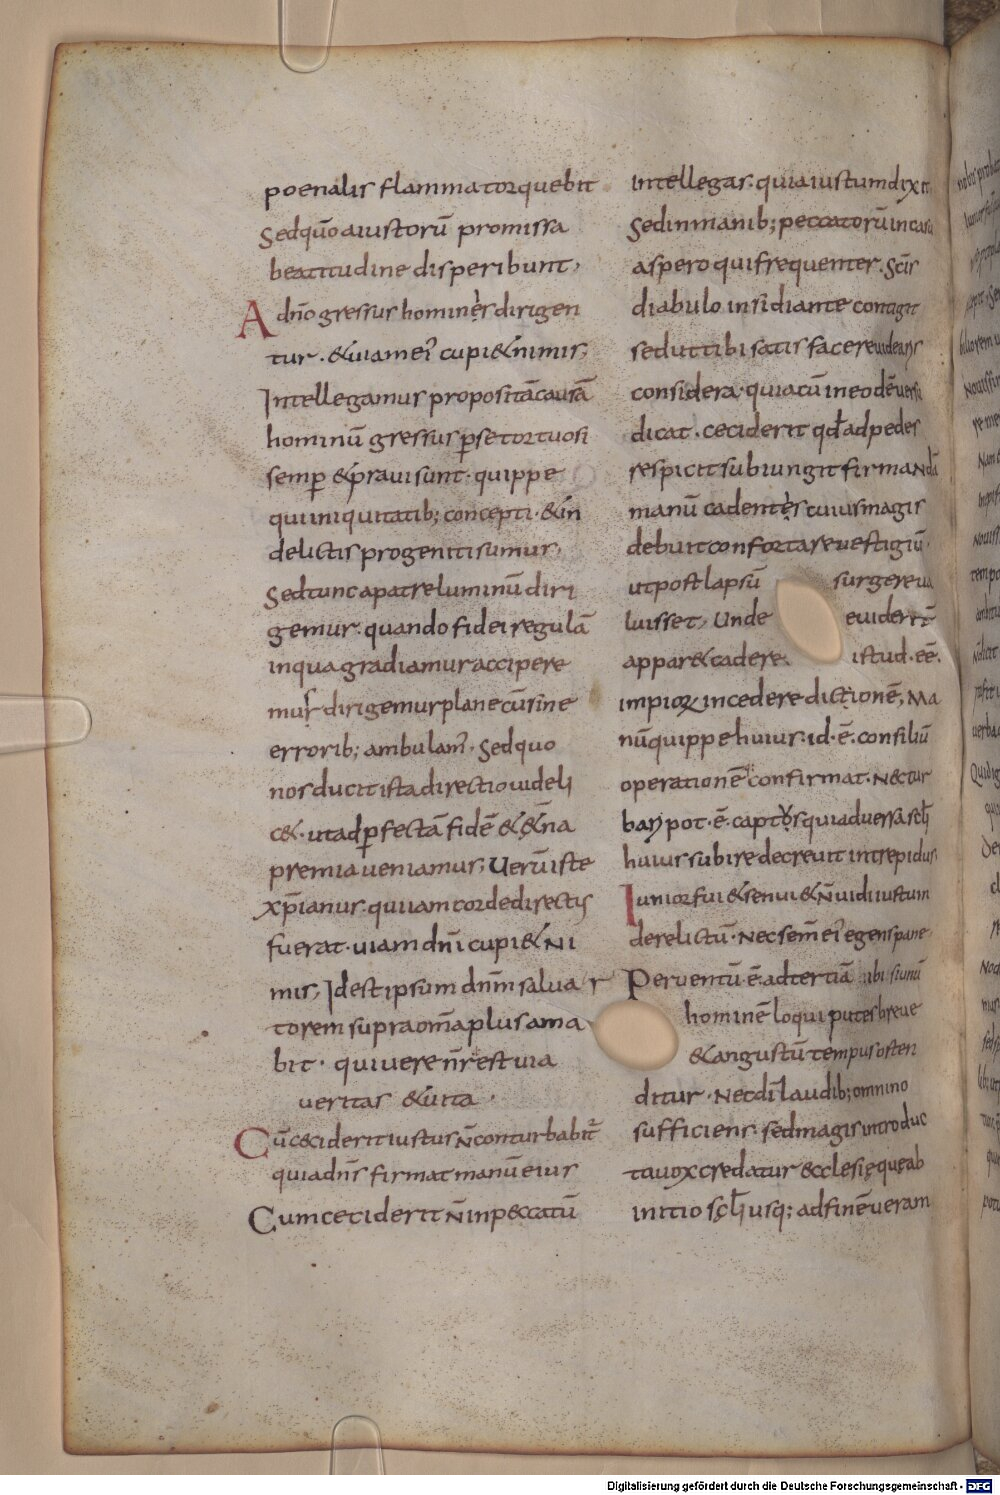 poenalis flamma torquebit
Sed quō a iustorū promissa
beatitudine disperibunt,
A dn̄o gressus hominẹ̀s dirigen
tur . & uiam ei' cupi& nimis;
Intellegamus propositā causā
hominū gressus p̱ se tortuosi
semp̱ & praui sunt · quippe
qui iniquitatib; concepti · & in
delictis progeniti sumus,
Sed tunc a patre luminū diri
gemur · quando fidei regulā
in qua gradiamur accipere
mur dirigemur plane cū sine
errorib; ambulam', Sed quo
nos ducit ista directio uideli
c& · ut ad p̱fectā fidē & &̄na
premia ueniamus; Uerū iste
xp̄ianus · qui iam corde directus
fuerat · uiam dn̄i cupi& ni
mis, Idest ipsum dn̄m salua
torem supra om̄a plus ama
bit · qui uere nr̄ est uia
ueritas & uita ·
Cū ceciderit iustus n̄ conturbabit'
quia dn̄s firmat manū eius
Cum ceciderit n̄ in peccatū
intellegas · quia iustum dixit
Sed in manib; peccatorū in casu
aspero qui frequenter · Sc̄is
diabolo insidiante contigit
sed ut tibi satisfacere uidear
considera · quia cū in eodē uersu
dicat · ceciderit qđ ad pedes
respicit subiungit firmandā
manū cadentẹ̀s cuius magis
debuit confortare uestigiū·
ut post lapsū surgere ua
luisset, Unde euident'
appar& cadere istud · eē·
impioꝝ incedere dictionē, Ma
nū quippe huius · id · ē · consiliū
operationē confirmat · Nec tur
bari pot · ē · captus quia aduersa sc̄li
huius subire decreuit intrepidus
Iunior fui & senui & n̄ uidi iustum
derelictū · Nec semē ei' egens pane
Peruentū · ē · ad tertiā ubi siunū
hominē loqui putes breue
& angustū tempus osten
ditur · Nec di' laudib; omnino
sufficiens · sed magis introduc
ta uox credatur ecclesię quę ab
initio sc̄li usq; ad finē ueram
Digitalisierung gefördert durch die Deutsche Forschungsgemeinschaft - DFG